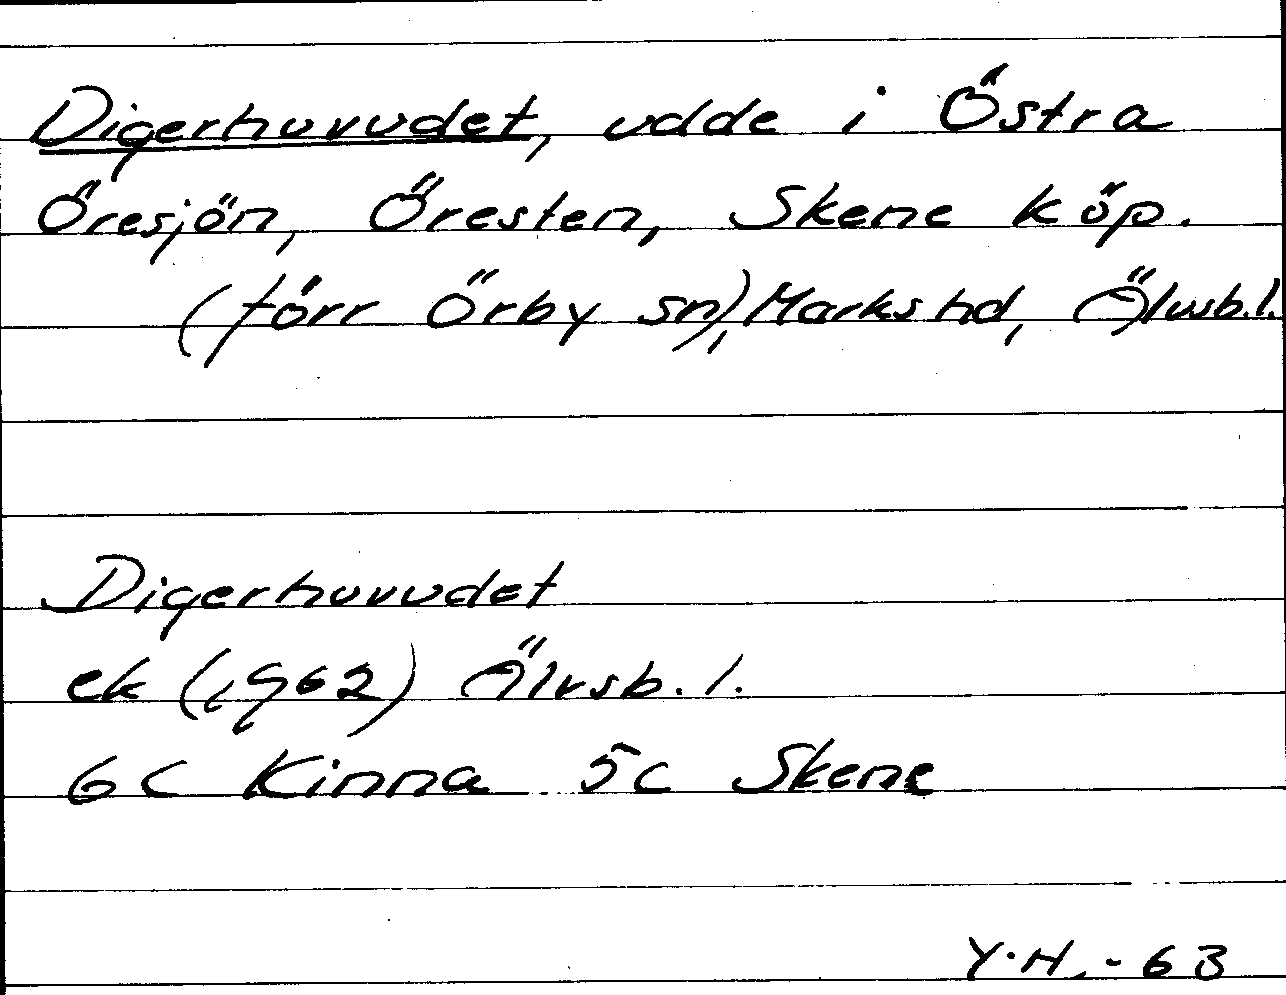 Digerhuvudet, udde i Östra
Öresjön, Öresten, Skene köp.
(förr Örby sn), Marks hd, Älvsb.l.
Digerhuvudet
ek (1962) Älvsb.l.
6C Kinna 5c Skene
Y.H.-63